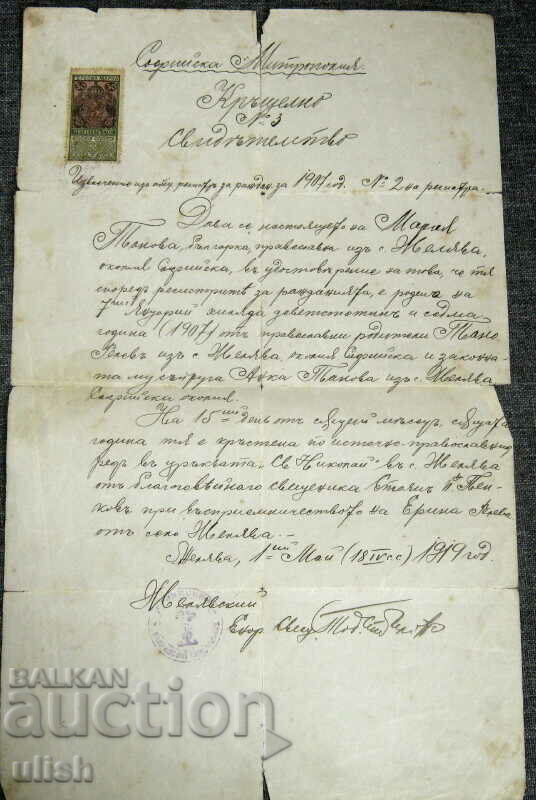 Софийска Митрополия.
Кръщелно
№ 3
Свидѣтелство
Извлечение изъ отд. регистъръ за ражден. за 1907 год. № 2 на регистра.
Дава се настоящето на Мария
Танова, българка, православна изъ с. Желява,
околия Софийска, въ удостовѣрение на това, че тя
споредъ регистритѣ за ражданията, е родена на
7мий Януарий хиляда деветстотинъ и седма
година (1907) отъ православни родители Тано
изъ с. Желява, околия Софийска и законна-
та му съпруга Танова изъ с. Желява
Софийска околия.
На 15ий день отъ сѫщий мѣсецъ, сѫщата
година тя е кръстена по источно-православния
редъ въ църквата „Св. Николай" въ с. Желява
отъ благоговѣйнаго священика Стоянъ П. Пен-
ковъ при възприемничеството на Ерина
отъ село Желява. —
Желява, 1ий Май (18 IV с с) 1919 год.
Желявский
Енор. Свещ.
BALKAN
auction
ulish